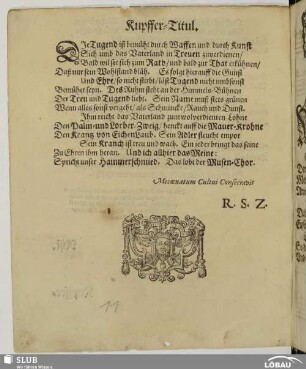 Kupffer-Titul.
DIe Tugend ist bemüht durch Waffen und durch Kunst
Sich umb das Vaterland in Treuen zuverdienen/
Bald wil sie sich zum Rath/ und bald zur That erkühnen/
Daß nur sein Wohlstand blüh. Es folgt hierauff die Gunst
Und Ehre/ so nicht stirbt/ läst Tugend nicht umbsonst
Bemühet seyn. Des Ruhm steht an der Himmels-Bühnen
Der Treu und Tugend liebt. Sein Name muß stets grünen
Wenn alles sonst vergeht/ als Schmincke/ Rauch und Dunst.
Ihm reicht das Vaterland zum wolverdienten Lohne
Den Palm- und Lorber-Zweig/ henckt auff die Mauer-Krohne
Den Krantz von Eichenlaub. Sein Adler fleucht empor
Sein Kranch ist treu und wach. Ein ieder bringt das seine
Zu Ehren ihm heran. Und ich allhier das Meine:
Spricht unser Hammerschmied. Das lobt der Musen-Chor.
Mecœnatum Cultui Consecravit
R. S. Z.
11
SLUB
Wir führen Wissen.
LÖBAU